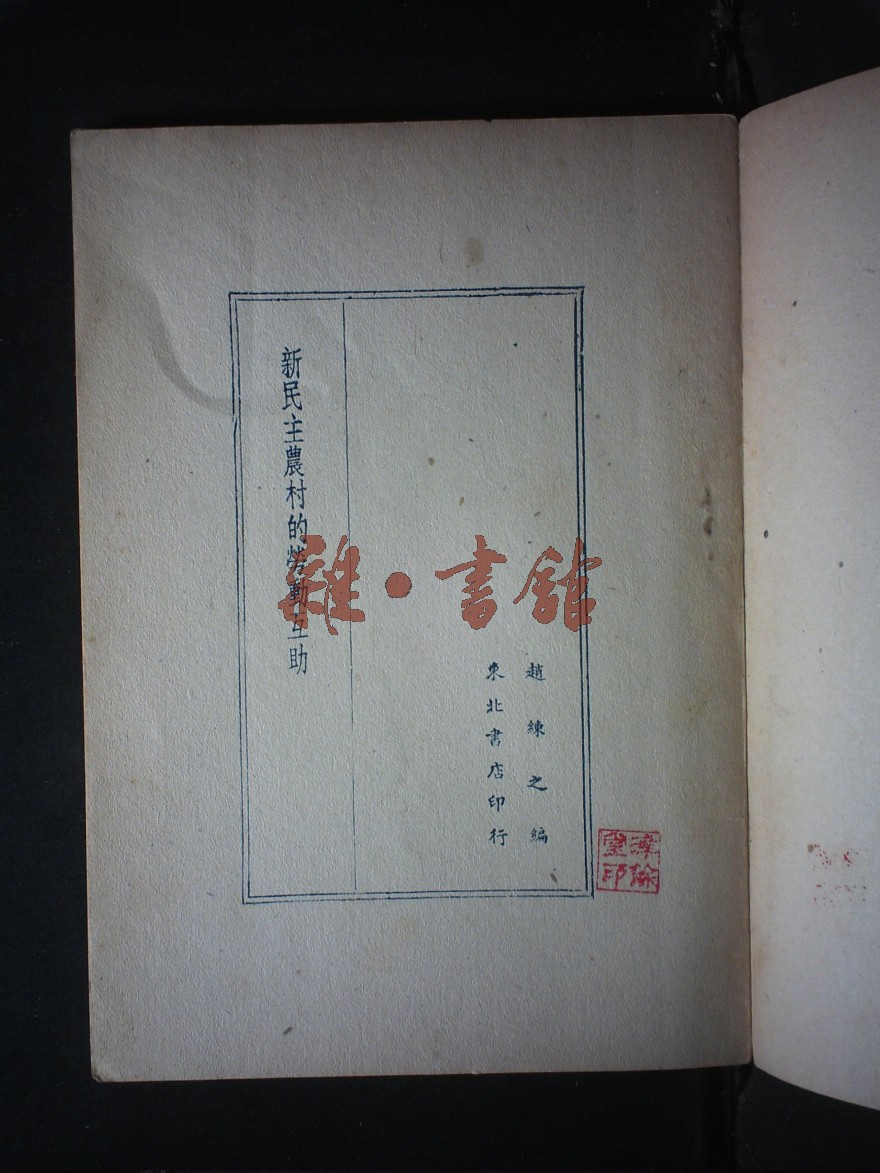 新民主農村的勞動互助
趙練之編
東北書店印行
雜·書館